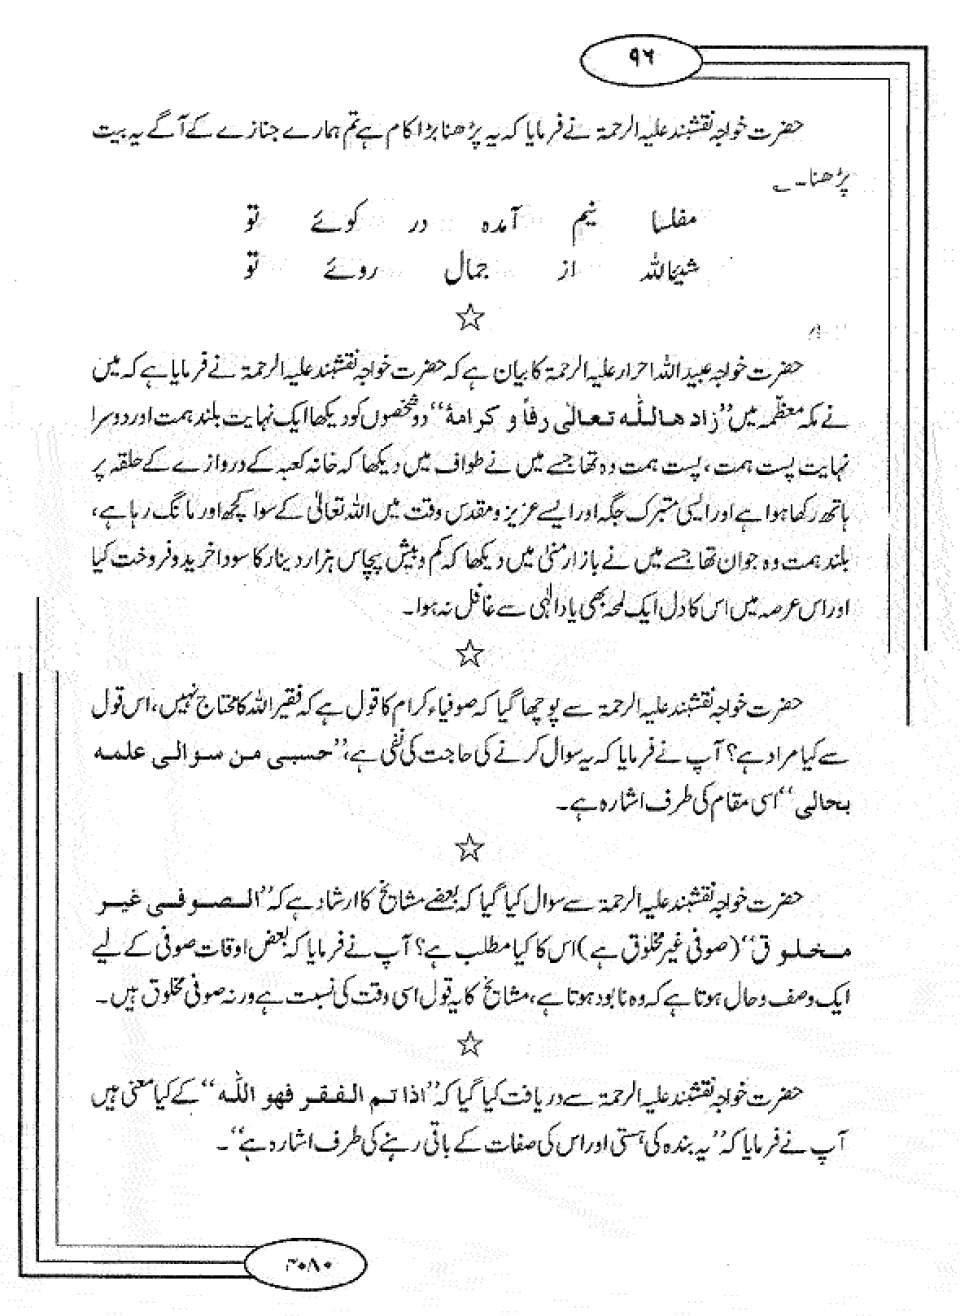 ۹۶
حضرت خواجہ نقشبند علیہ الرحمۃ نے فرمایا کہ یہ پڑھنا بڑا کام ہے تم ہمارے جنازے کے آگے یہ بیت
پڑھنا۔ ؎
مفلسا نیم آمدہ در کوئے تو
شیئاللہ از جمال روئے تو
☆
حضرت خواجہ عبید اللہ احرار علیہ الرحمۃ کا بیان ہے کہ حضرت خواجہ نقشبند علیہ الرحمۃ نے فرمایا ہے کہ میں
نے مکہ معظّمہ میں ”زاد ھاللّٰہ تعالٰی رفاً و کرامۃ“ دو شخصوں کو دیکھا ایک نہایت بلند ہمت اور دوسرا
نہایت پست ہمت، پست ہمت وہ تھا جسے میں نے طواف میں دیکھا کہ خانہ کعبہ کے دروازے کے حلقہ پر
ہاتھ رکھا ہوا ہے اور ایسی متبرک جگہ اور ایسے عزیز و مقدس وقت میں اللہ تعالیٰ کے سوا کچھ اور مانگ رہا ہے،
بلند ہمت وہ جوان تھا جسے میں نے بازار منیٰ میں دیکھا کہ کم و بیش پچاس ہزار دینار کا سودا خرید و فروخت کیا
اور اس عرصہ میں اس کا دل ایک لمحہ بھی یاد الٰہی سے غافل نہ ہوا۔
☆
حضرت خواجہ نقشبند علیہ الرحمۃ سے پوچھا گیا کہ صوفیاء کرام کا قول ہے کہ فقیر اللہ کا محتاج نہیں، اس قول
سے کیا مراد ہے؟ آپ نے فرمایا کہ یہ سوال کرنے کی حاجت کی نفی ہے، ”حسبی من سوالی علمہ
بحالی“ اسی مقام کی طرف اشارہ ہے۔
☆
حضرت خواجہ نقشبند علیہ الرحمۃ سے سوال کیا گیا کہ بعضے مشایخ کا ارشاد ہے کہ ”الصوفی غیر
مخلوق“ (صوفی غیر مخلوق ہے) اس کا کیا مطلب ہے؟ آپ نے فرمایا کہ بعض اوقات صوفی کے لیے
ایک وصف و حال ہوتا ہے کہ وہ نابود ہوتا ہے، مشایخ کا یہ قول اسی وقت کی نسبت ہے ورنہ صوفی مخلوق ہیں۔
☆
حضرت خواجہ نقشبند علیہ الرحمۃ سے دریافت کیا گیا کہ ”اذا تم الفقر فھو اللّٰہ“ کے کیا معنی ہیں
آپ نے فرمایا کہ ”یہ بندہ کی ہستی اور اس کی صفات کے باقی رہنے کی طرف اشارہ ہے“۔